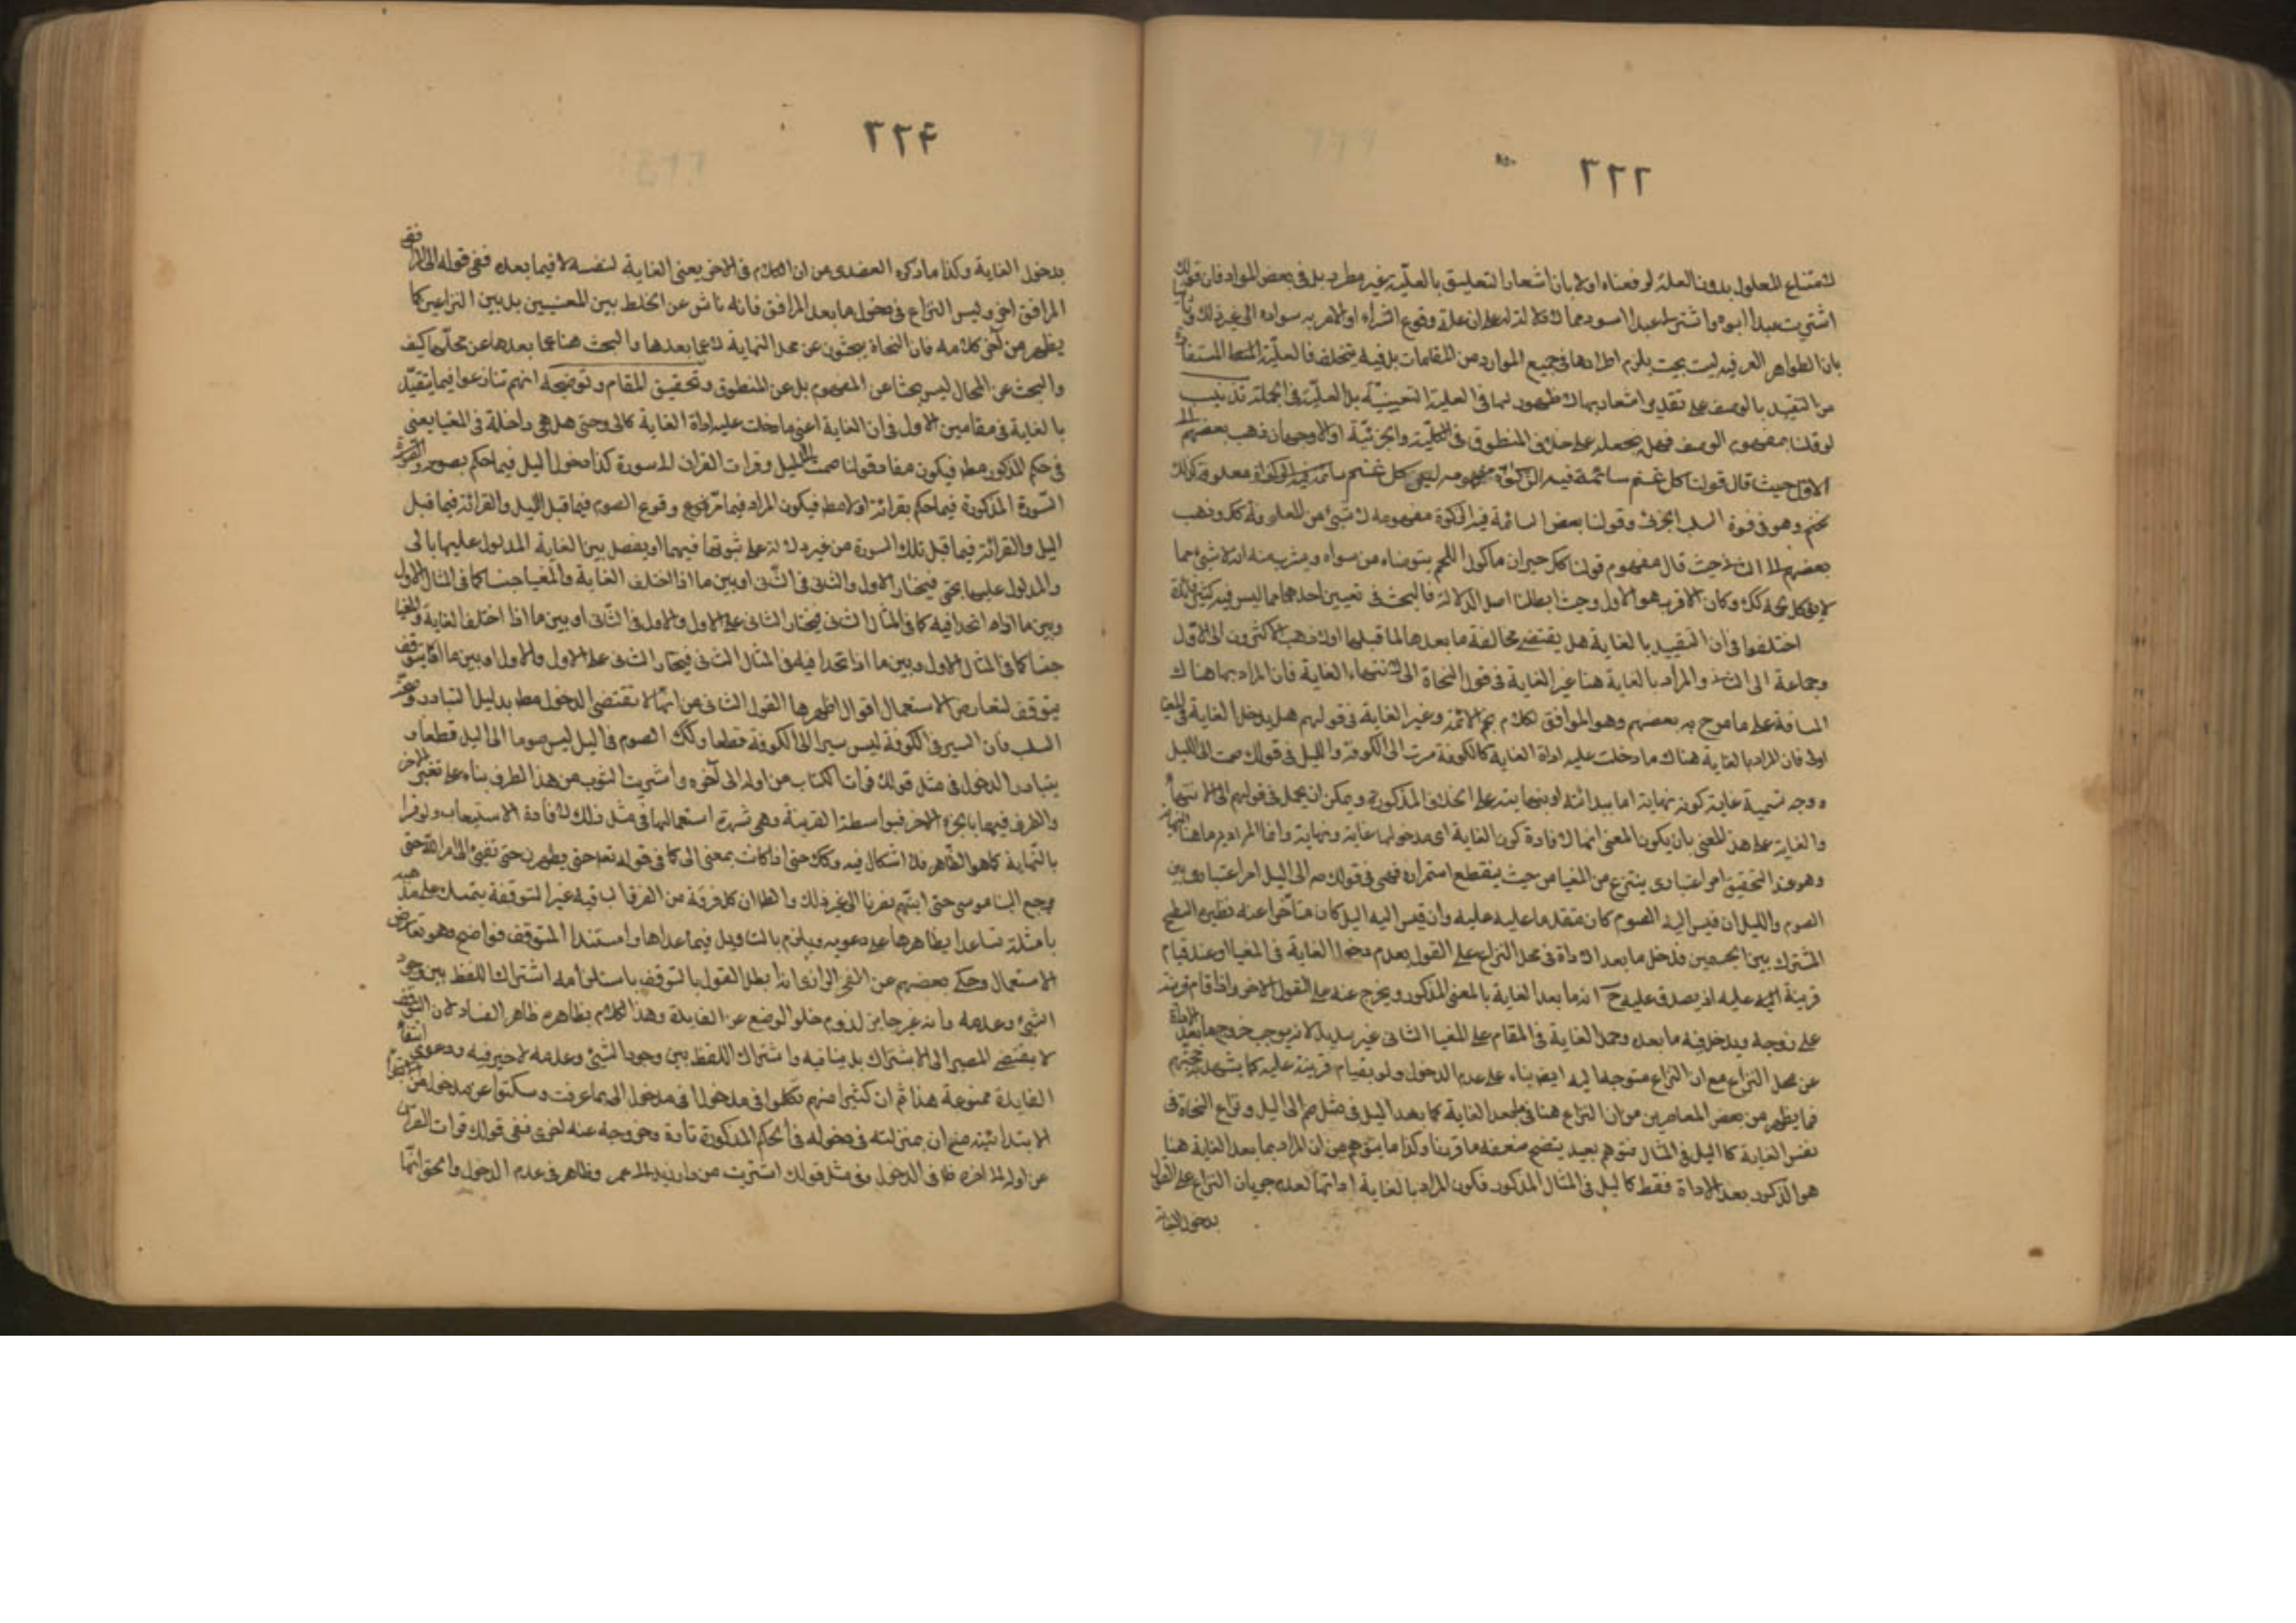 ٢٢٢
لامتناع المعلول بدون العلة لدفعناه اولا بان اشعار التعليق بالعليّة غير مطرد بل في بعض الموارد فان قولك
اشتريت عبدا اليوم واشتر لي عبدا اسود مما لا دلالة له على ان علة وقوع الشراء او الامر به سواده الى غير ذلك وثانيا
بان الظواهر العرفية ليست بحيث يلزم اطرادها في جميع الموارد من المقامات بل فيه يتخلف فالعليّة المستفادة
من التقييد بالوصف على تقدير اشعار بها لا ظهور لها في العلية التعيينيّة بل العليّة في الجملة تذنيب
لو قلنا بمفهوم الوصف فهل نجعله على خلاف المنطوق في الكليّة والجزئيّة او لا وجهان ذهب بعضهم الى
الاول حيث قال قولنا كل غنم سائمة فيه الزكوة مفهومه ليس كل غنم معلوفة كذلك
وهو في قوة السلب الجزئي وقولنا بعض السائمة فيه الزكوة مفهومه لا شيء من المعلوفة كك وذهب
بعضهم الى الثاني حيث قال مفهوم قولنا كل حيوان ماكول اللحم يتوضاء من سواره ويشرب منه انه لا شيء مما
لا يؤكل لحمه كك وكان الاقرب هو الاول وحيث ابطلنا اصل الدلالة فالبحث في تعيين احدهما مما ليس فيه كثير فائدة
اختلفوا في ان التقييد بالغاية هل يقتضي مخالفة ما بعدها لما قبلها او لا فذهب الاكثرون الى الاول
وجماعة الى الثاني والمراد بالغاية هنا غير الغاية في قول النحاة الى لانتهاء الغاية فان المراد بها هناك
المسافة على ما صرح به بعضهم وهو الموافق لكلام نجم الائمة وغير الغاية في قولهم هل يدخل الغاية في المغيا
او لا فان المراد بالغاية هناك ما دخلت عليه اداة الغاية كالكوفة في سرت الى الكوفة والليل في قولك صمت الى الليل
ووجه تسمية غاية كونه نهاية اما ببدائته او بنهايته على الخلاف المذكور ويمكن ان يحمل في قولهم الى لانتهاء
والغاية على هذا المعنى بان يكون المعنى انها لافادة كون الغاية اى مدخولها غاية ونهاية وانما المراد بها هنا النهاية
وهو عند التحقيق امر اعتبارى ينتزع من المغيا من حيث ينقطع استمراره فهى في قولك صم الى الليل امر اعتبارى بين
الصوم والليل ان قيس اليه الصوم كان متقدما عليه وان قيس اليه الليل كان متأخرا عنه نظير السطح
المشترك بين الجسمين فدخل ما بعد الاداة في محل النزاع على القول بعدم دخول الغاية في المغيا او عند قيام
قرينة عليه اذ يصدق عليه ح انه ما بعد الغاية بالمعنى المذكور ويخرج عنه على القول الاخر واذا قام قرينة
على خروجه ويدخل فيه ما بعده وحمل الغاية في المقام على المغيا الثاني غير سديد لانه يوجب خروج ما بعد الاداة
عن محل النزاع مع ان النزاع متوجه اليه ايضا بناء على عدم الدخول ولو بقيام قرينة عليه كما يشهد به حججهم
فما يظهر من بعض المعاصرين من ان النزاع هنا في ما بعد الغاية كما بعد الليل في مثل صم الى الليل ونزاع النحاة في
نفس الغاية كالليل في المثال متوهم بعيد يتضح ضعفه مما قررنا وكذا ما يتوهم من ان المراد بما بعد الغاية هنا
هو المذكور بعد الاداة فقط كالليل في المثال المذكور فيكون المراد بالغاية اداتها لعدم جريان النزاع على القول
بدخول الغاية
٢٢٤
بدخول الغاية وكذا ما ذكره العضدى من ان الكلام في الاخر يعنى الغاية لنفسه لا فيما بعده ففى قوله الى المرافق
المرافق اخر وليس النزاع في دخول ما بعد المرافق فانه ناش عن الخلط بين المعنيين بل بين النزاعين كما
يظهر من آخر كلامه فان النحاة يبحثون عن محل النهاية لا عما بعدها والبحث هنا عما بعدها عن محلها كيف
والبحث عن المحال ليس بحثا عن المفهوم بل عن المنطوق وتحقيق المقام وتوضيحه انهم تنازعوا فيما يتقيّد
بالغاية في مقامين الاول في ان الغاية اعنى ما دخلت عليه اداة الغاية كالى وحتى هل هى داخلة في المغيا يعنى
في حكم المذكور مط فيكون مفاد قولنا صمت الى الليل وقرات القران الى سورة كذا دخول الليل فيما حكم بصومه والسورة
السّورة المذكورة فيما حكم بقرائة اولا مط فيكون المراد فيما مرّ وقوع الصوم فيما قبل الليل والقرائة فيما قبل
الليل والقرائة فيما قبل تلك السورة من غير دلالة على ثبوتها فيهما او يفصل بين الغاية المدلول عليها بالى
والمدلول عليها بحتى فيختار الاول والثانى في الثّانى او بين ما اذا اختلف الغاية والمغيا جنسا كما في المثال الاول
وبين ما اذا اتحدا فيه كما في المثال الثانى فيختار الثانى على الاول والاول في الثانى او بين ما اذا اختلفا الغاية والمغيا
جنسا كما في المثال الاول وبين ما اذا اتحدا فيه في المثال الثانى فيختار الثانى على الاول والاول او بين ما
يتوقف لتعارض الاستعمال اقوال اظهرها القول الثانى من انها لا تقتضى الدخول مط بدليل التبادر وصحّة
السلب فان السير في الكوفة ليس سيرا الى الكوفة قطعا وكك الصوم في الليل ليس صوما الى الليل قطعا و
يتبادر الدخول في مثل قولك قرات الكتاب من اوله الى آخره واشتريت الثوب من هذا الطرف بناء على تعيّن الاخر
والطرف فيهما بالجزء الاخر فبواسطة القرينة وهى شهرة استعمالها في مثل ذلك لافادة الاستيعاب ولو فسرا
بالنهاية كما هو الظاهر فلا اشكال فيه وكك حتى اذا كانت بمعنى الى كما في قوله تع حتى يطهرن حتى تفئ الى امر الله حتى
يرجع الينا موسى حتى ابتهم نفرنا الى غير ذلك والظ ان كل فرقة من الفرق الباقية غير المتوقفة يتمسك على مذهبه
بامثلة تساعد بظاهرها على دعويه ويلزم بالتاويل فيما عداها واما مستند المتوقف فواضح وهو تعارض
الاستعمال وحكى بعضهم عن الفخر الرازى انه ابطل القول بالتوقف باستلزامه اشتراك اللفظ بين وجود
الشئ وعدمه وانه غير جايز لخلو الوضع عن الفايدة وهذا الكلام بظاهره ظاهر الفساد لان التوقف
لا يقتضى المصير الى الاشتراك بل ينافيه واشتراك اللفظ بين وجود الشئ وعدمه لا خير فيه ودعوى انتفاء
الفايدة ممنوعة هذا ثم ان كثيرا منهم تكلموا في مدخول الى بما عرفت وسكتوا عن مدخول من
الابتدائية مع ان بمنزلته في دخوله في الحكم المذكورة تارة وخروجه عنه اخرى ففى قولك قرات القران
من اوله الى اخره ظ في الدخول وفى مثل قولك اشتريت من دار زيد الى عمر وظاهر في عدم الدخول والحق انها